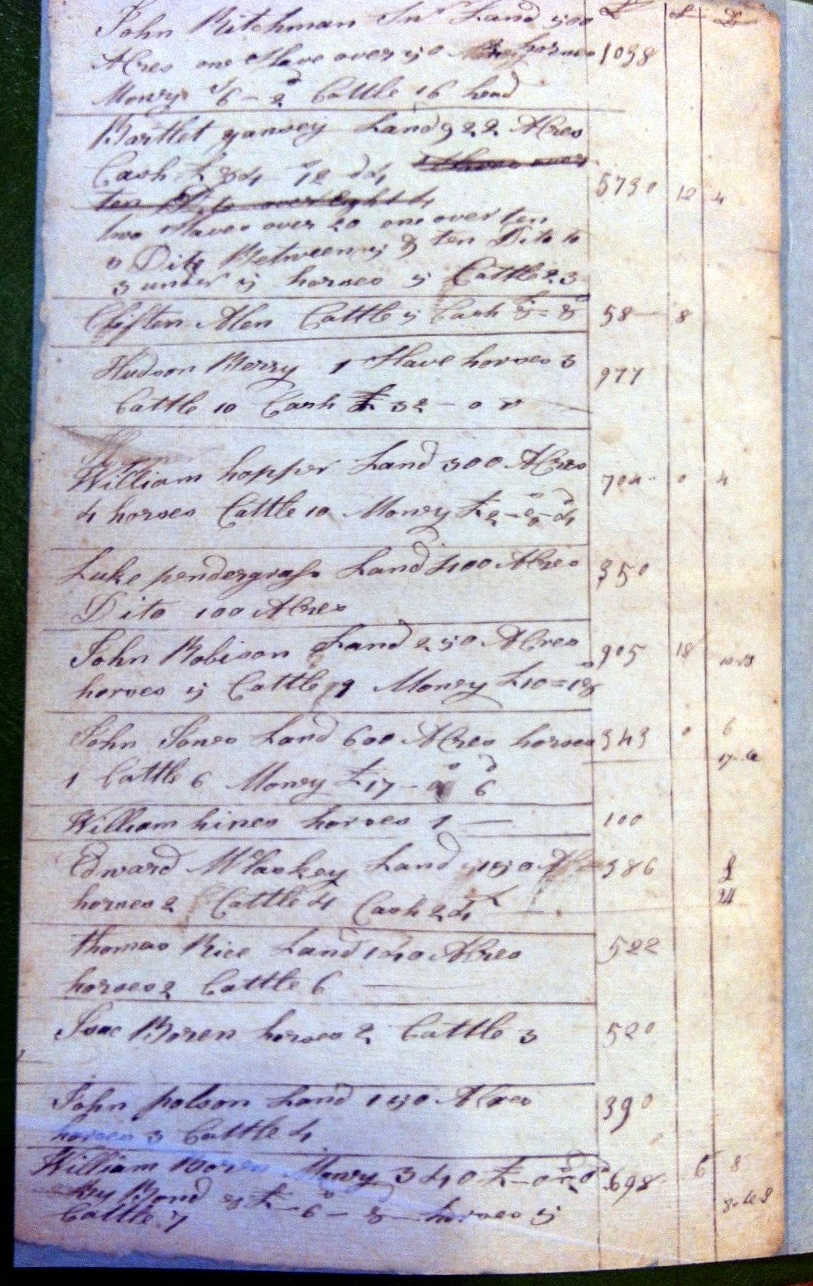 £ S D
John Kitchman Snr Land 500
Acres one Slave over 50 horses 1098
Money 6 - 2 Cattle 16 head
Bartlet yansey Land 922 Acres
Cash £ 84 12 d4
5730 12 4
two Slaves over 20 one over ten
3 Dito Between 5 & ten Dito
3 under 5 horses 5 Cattle 23
Clifton Alen Cattle 5 Cash £ 8 = 8 58 8
Hudson Berry 1 Slave horses 3 977
Cattle 10 Cash £ 32 - 0
William hopper Land 300 Acres 704 0 4
4 horses Cattle 10 Money £ 2 - 0 - d4
Luke pendergrass Land 400 Acres 350
Dito 100 Acres
John Robison Land 250 Acres 905 18
horses 5 Cattle 9 Money £10 = 18
John Jones Land 600 Acres horses 343 0 6
1 Cattle 6 Money £17 - 0 6
William hines horses 1 100
Edward McCaskey Land 150 386 £
horses 2 Cattle 4 Cash 24 24
thomas Rice Land 140 Acres 522
horses 2 Cattle 6
Isac Boren horses 2 Cattle 3 520
John polson Land 150 Acres 390
horses 3 Cattle 4
William Boren Money 340 £ 698 6 8
By Bond 8 £ - 6 - 8 horses 5
Cattle 7